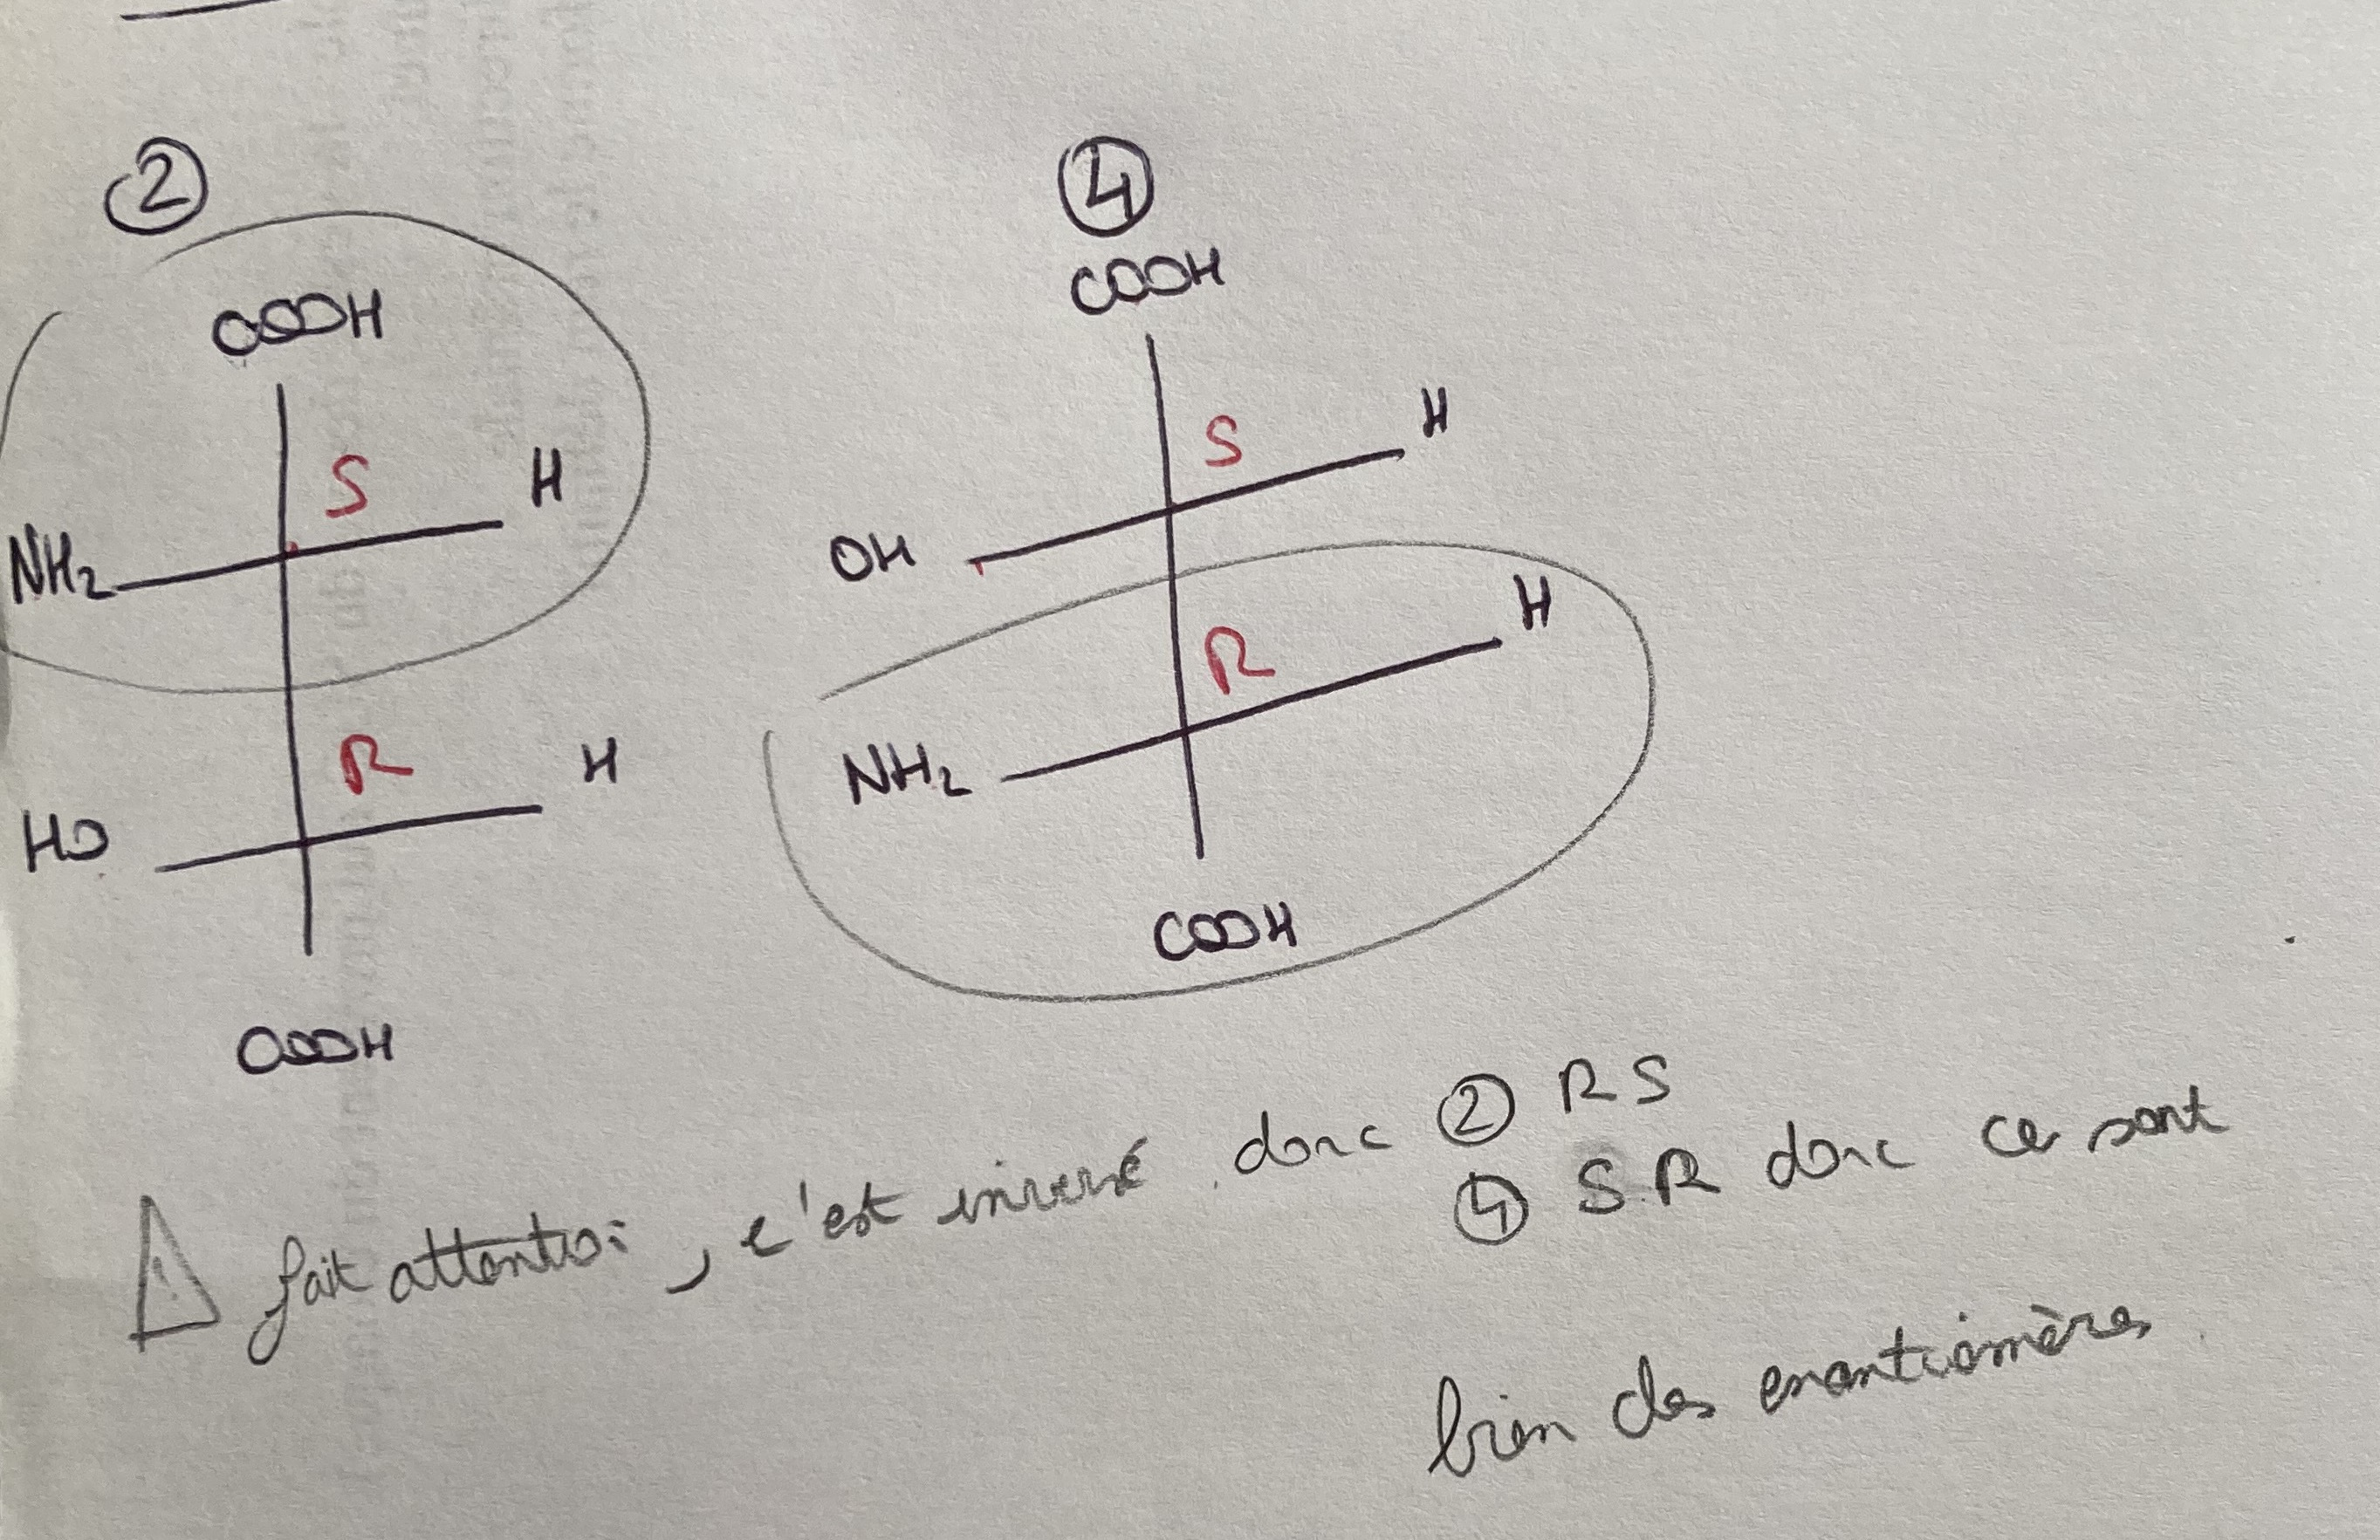 ② ④
COOH COOH
S H S H
NH₂ OH
R H R H
HO NH₂
COOH COOH
⚠ fait attention, c'est inversé donc ② RS
④ SR donc ce sont
bien des enantiomères